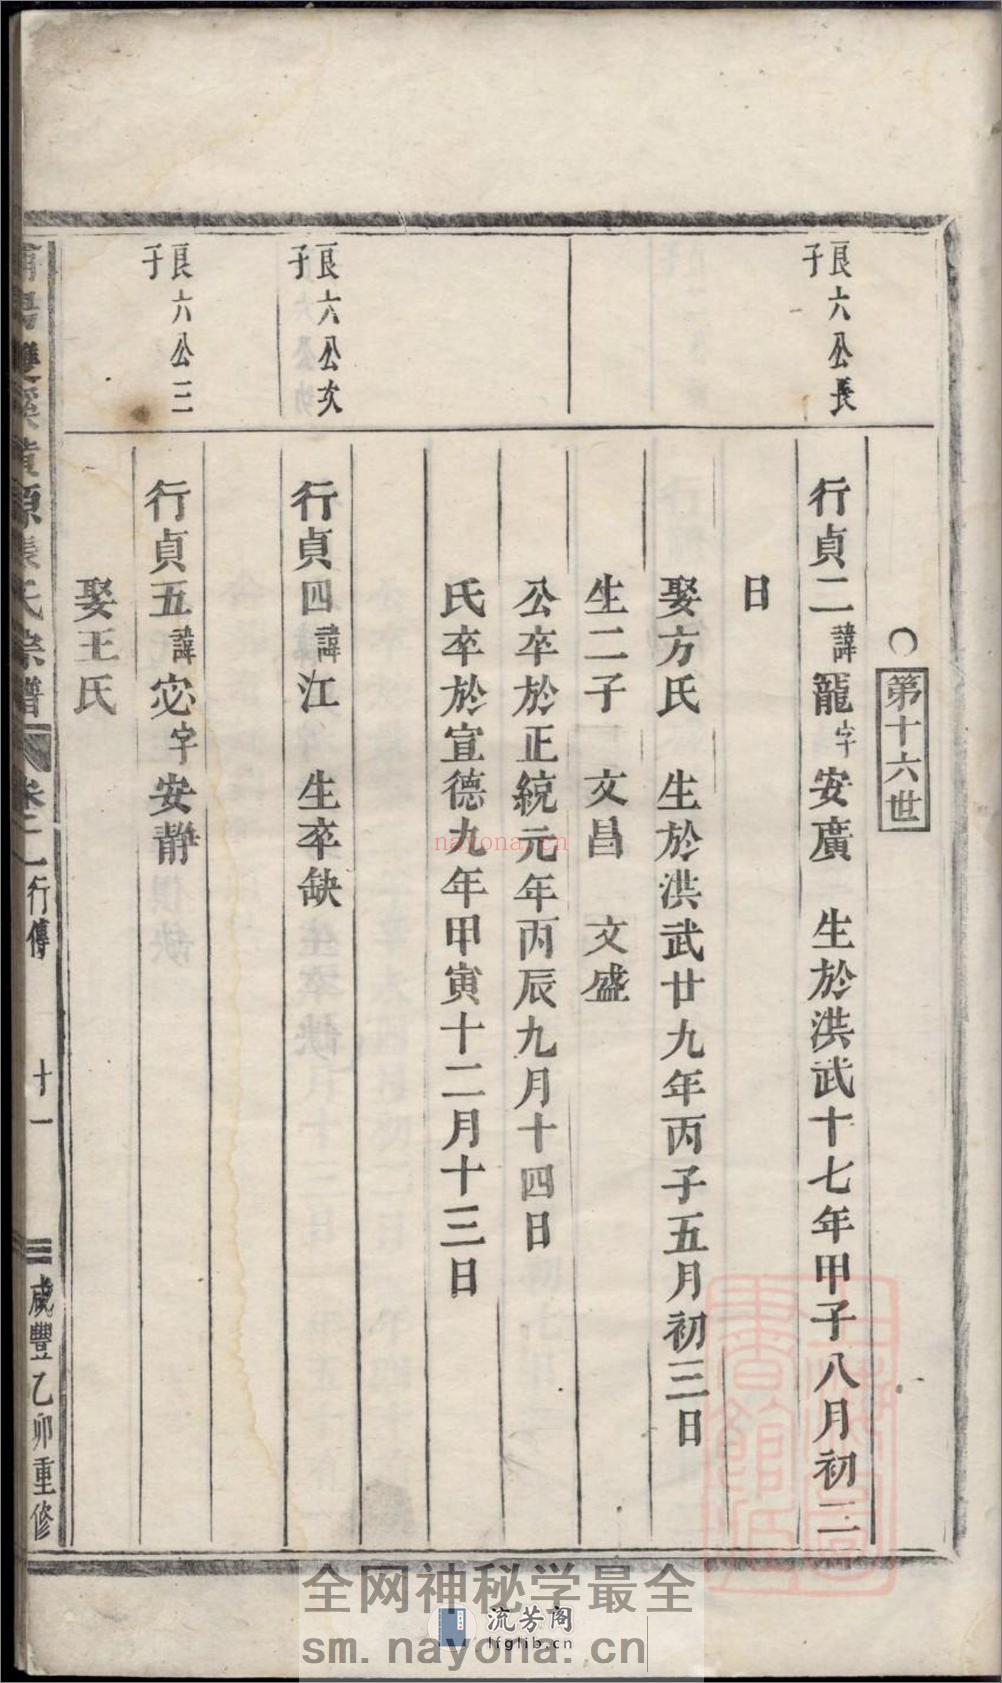 第十六世
良六公長
子
行貞二諱寵字安廣 生於洪武十七年甲子八月初二
日
娶方氏 生於洪武廿九年丙子五月初三日
生二子 文昌 文盛
公卒於正統元年丙辰九月十四日
氏卒於宣德九年甲寅十二月十三日
良六公次
子
行貞四諱江 生卒缺
良六公三
子
行貞五諱宓字安靜
娶王氏
雙溪黃源張氏宗譜 行傳 十一 咸豐乙卯重修
nayona.cn
全网神秘学最全
流芳阁
lfglib.cn
sm.nayona.cn